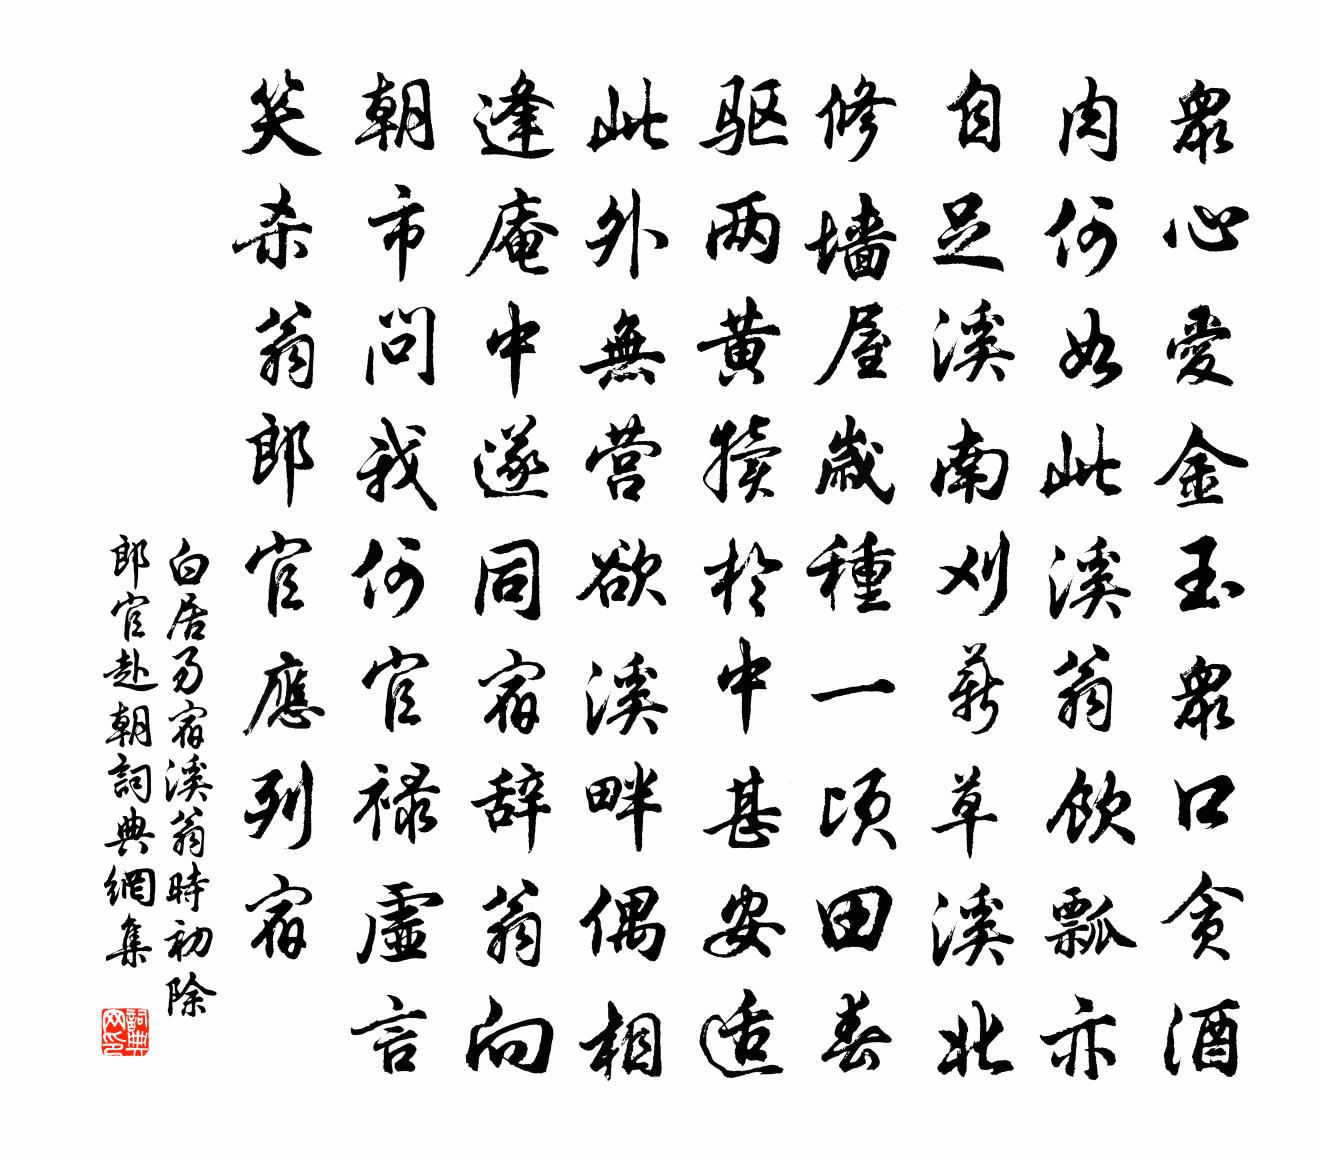 眾心愛金玉眾口贪酒
肉何如此溪翁飲瓢亦
自足溪南刈薪草溪北
修墙屋歲種一顷田春
驱两黄犊於中甚安适
此外無营欲溪畔偶相
逢庵中遂同宿辞翁向
朝市問我何官禄虛言
笑杀翁郎官應列宿
白居易宿溪翁時初除
郎官赴朝詞典網集
詞典
网印